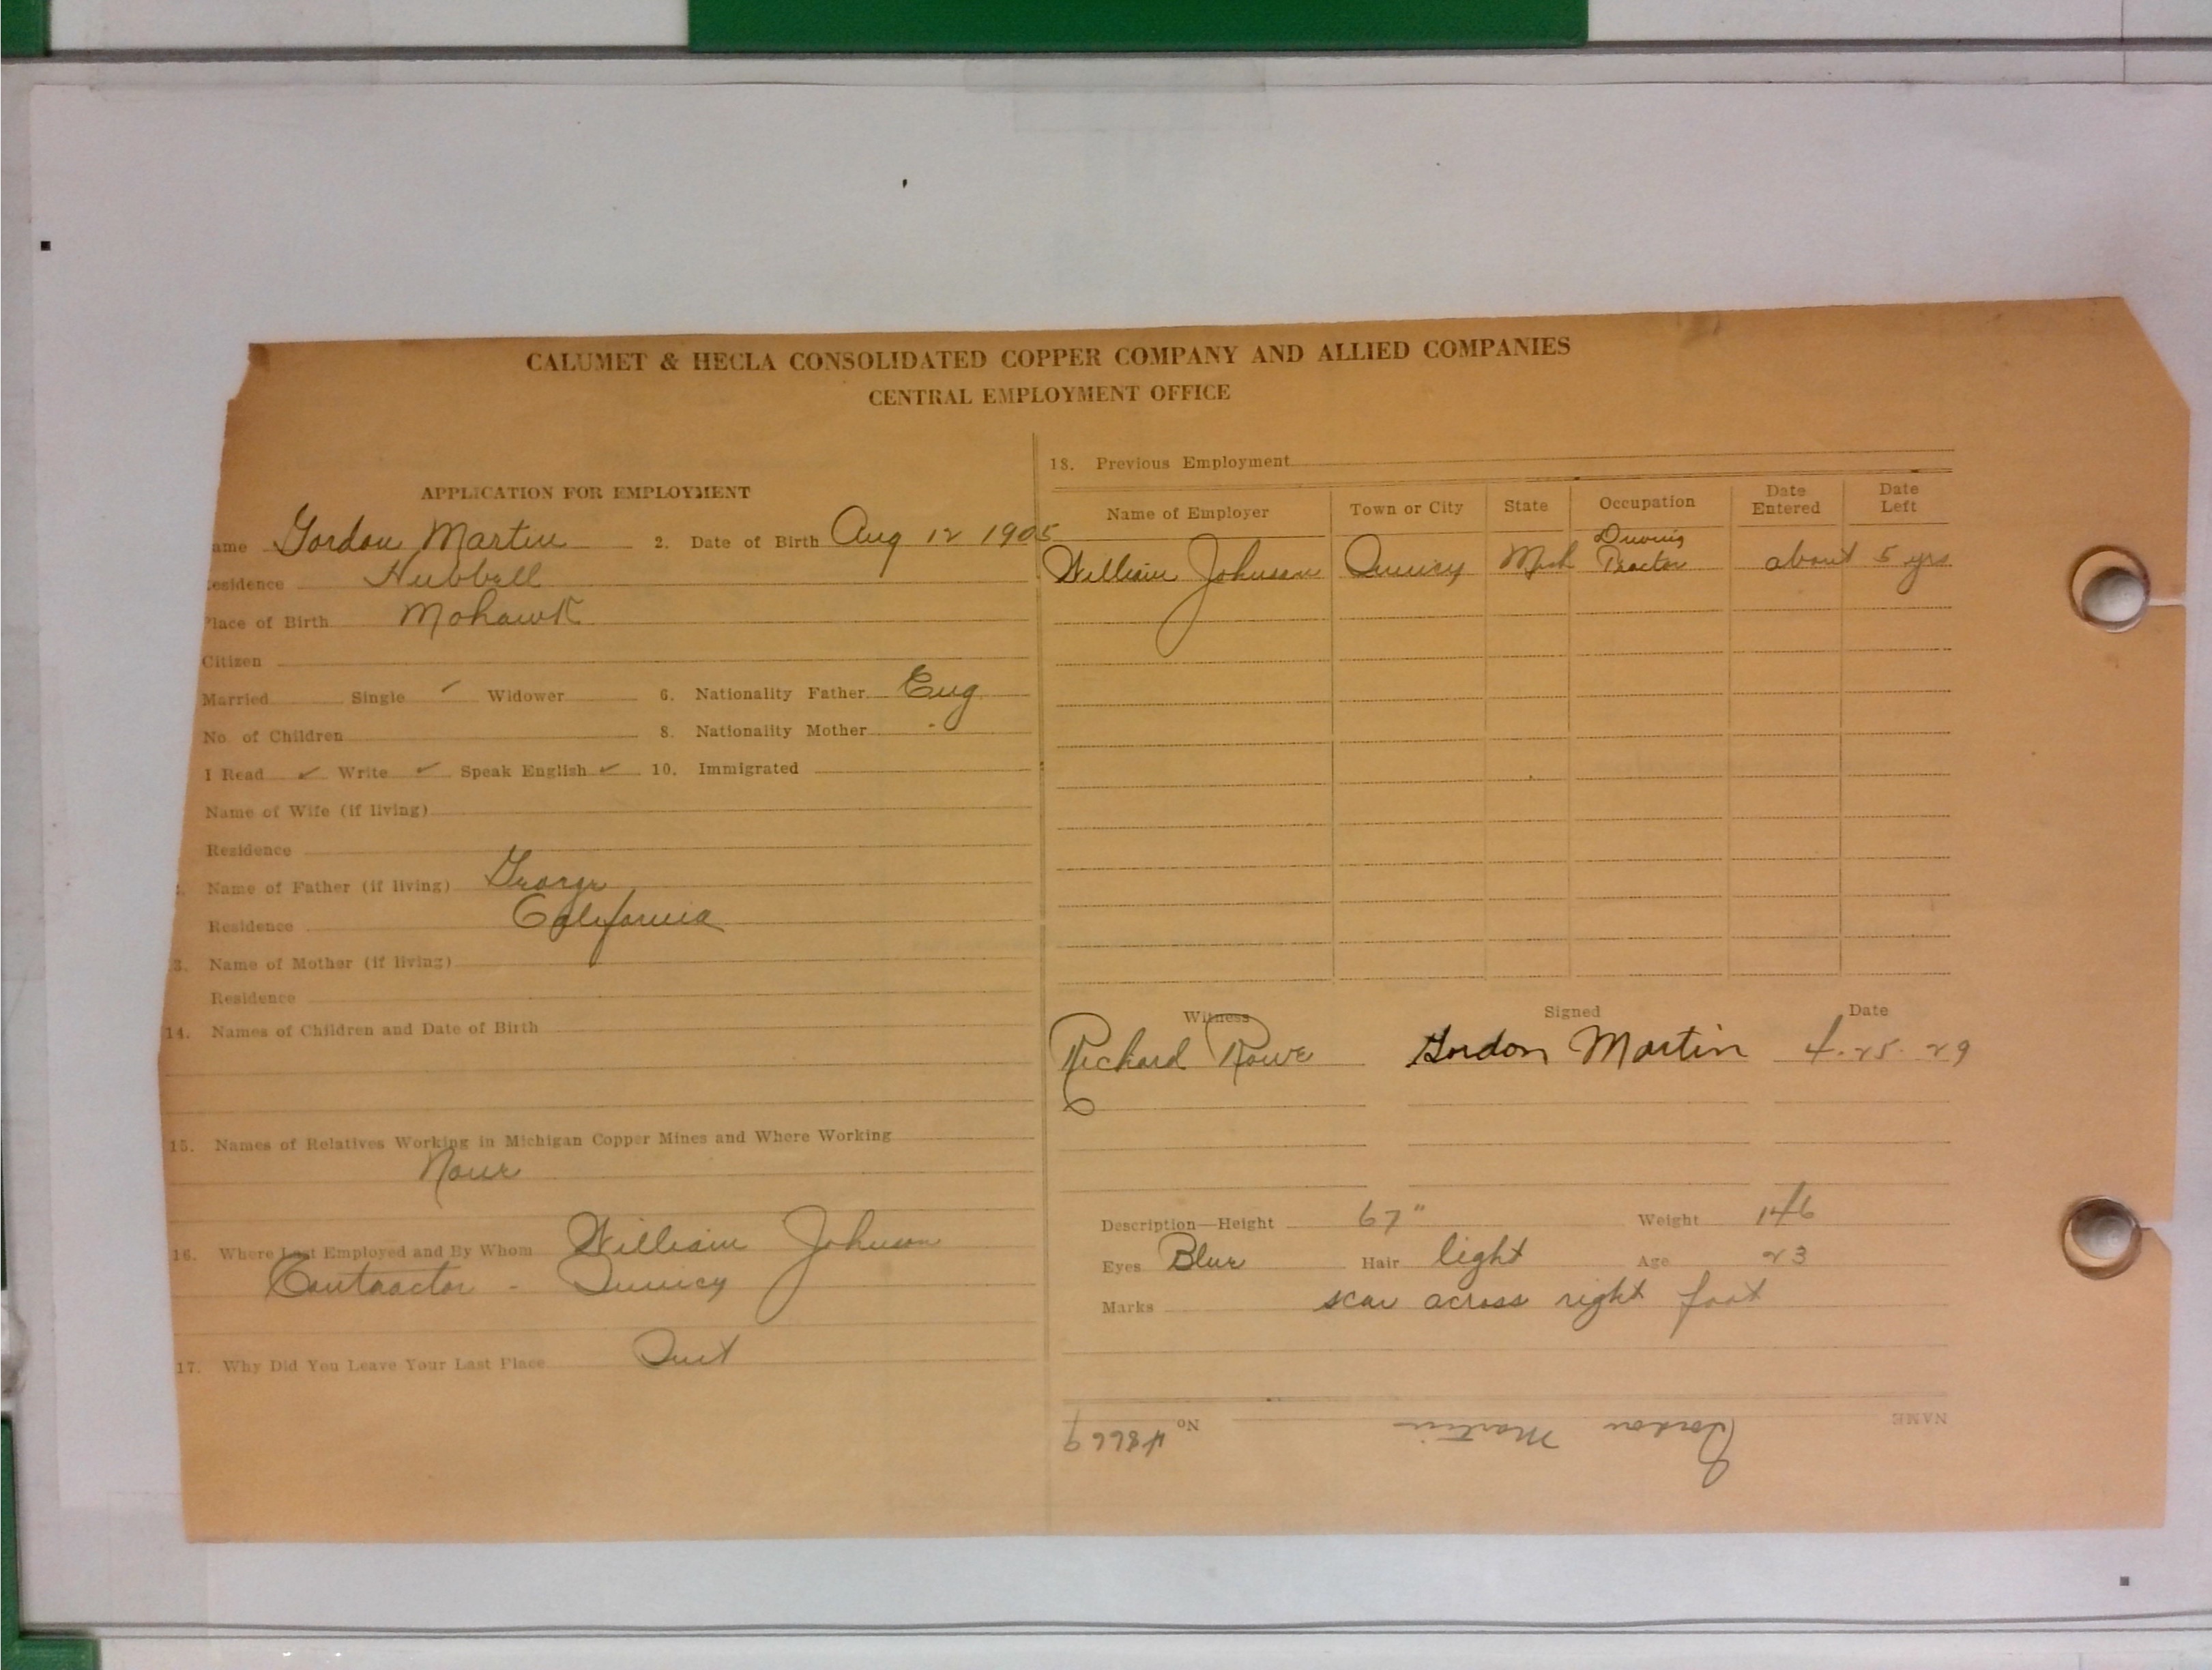 CALUMET & HECLA CONSOLIDATED COPPER COMPANY AND ALLIED COMPANIES
CENTRAL EMPLOYMENT OFFICE
APPLICATION FOR EMPLOYMENT
ame Gordon Martin 2. Date of Birth Aug 12 1905
esidence Hubbell
Place of Birth Mohawk
Citizen
Married Single ✓ Widower 6. Nationality Father Eng
No. of Children 8. Nationality Mother "
I Read ✓ Write ✓ Speak English ✓ 10. Immigrated
Name of Wife (if living)
Residence
Name of Father (if living) George
Residence California
3. Name of Mother (if living)
Residence
14. Names of Children and Date of Birth
15. Names of Relatives Working in Michigan Copper Mines and Where Working
None
16. Where Last Employed and By Whom William Johnson
Contractor - Quincy
17. Why Did You Leave Your Last Place Quit
18. Previous Employment
Name of Employer Town or City State Occupation Date Entered Date Left
William Johnson Quincy Mich Driving Tractor about 5 yrs
Witness Signed Date
Richard Rowe Gordon Martin 4-25-29
Description—Height 67" Weight 146
Eyes Blue Hair light Age 23
Marks scar across right foot
NAME Gordon Martin No 48669